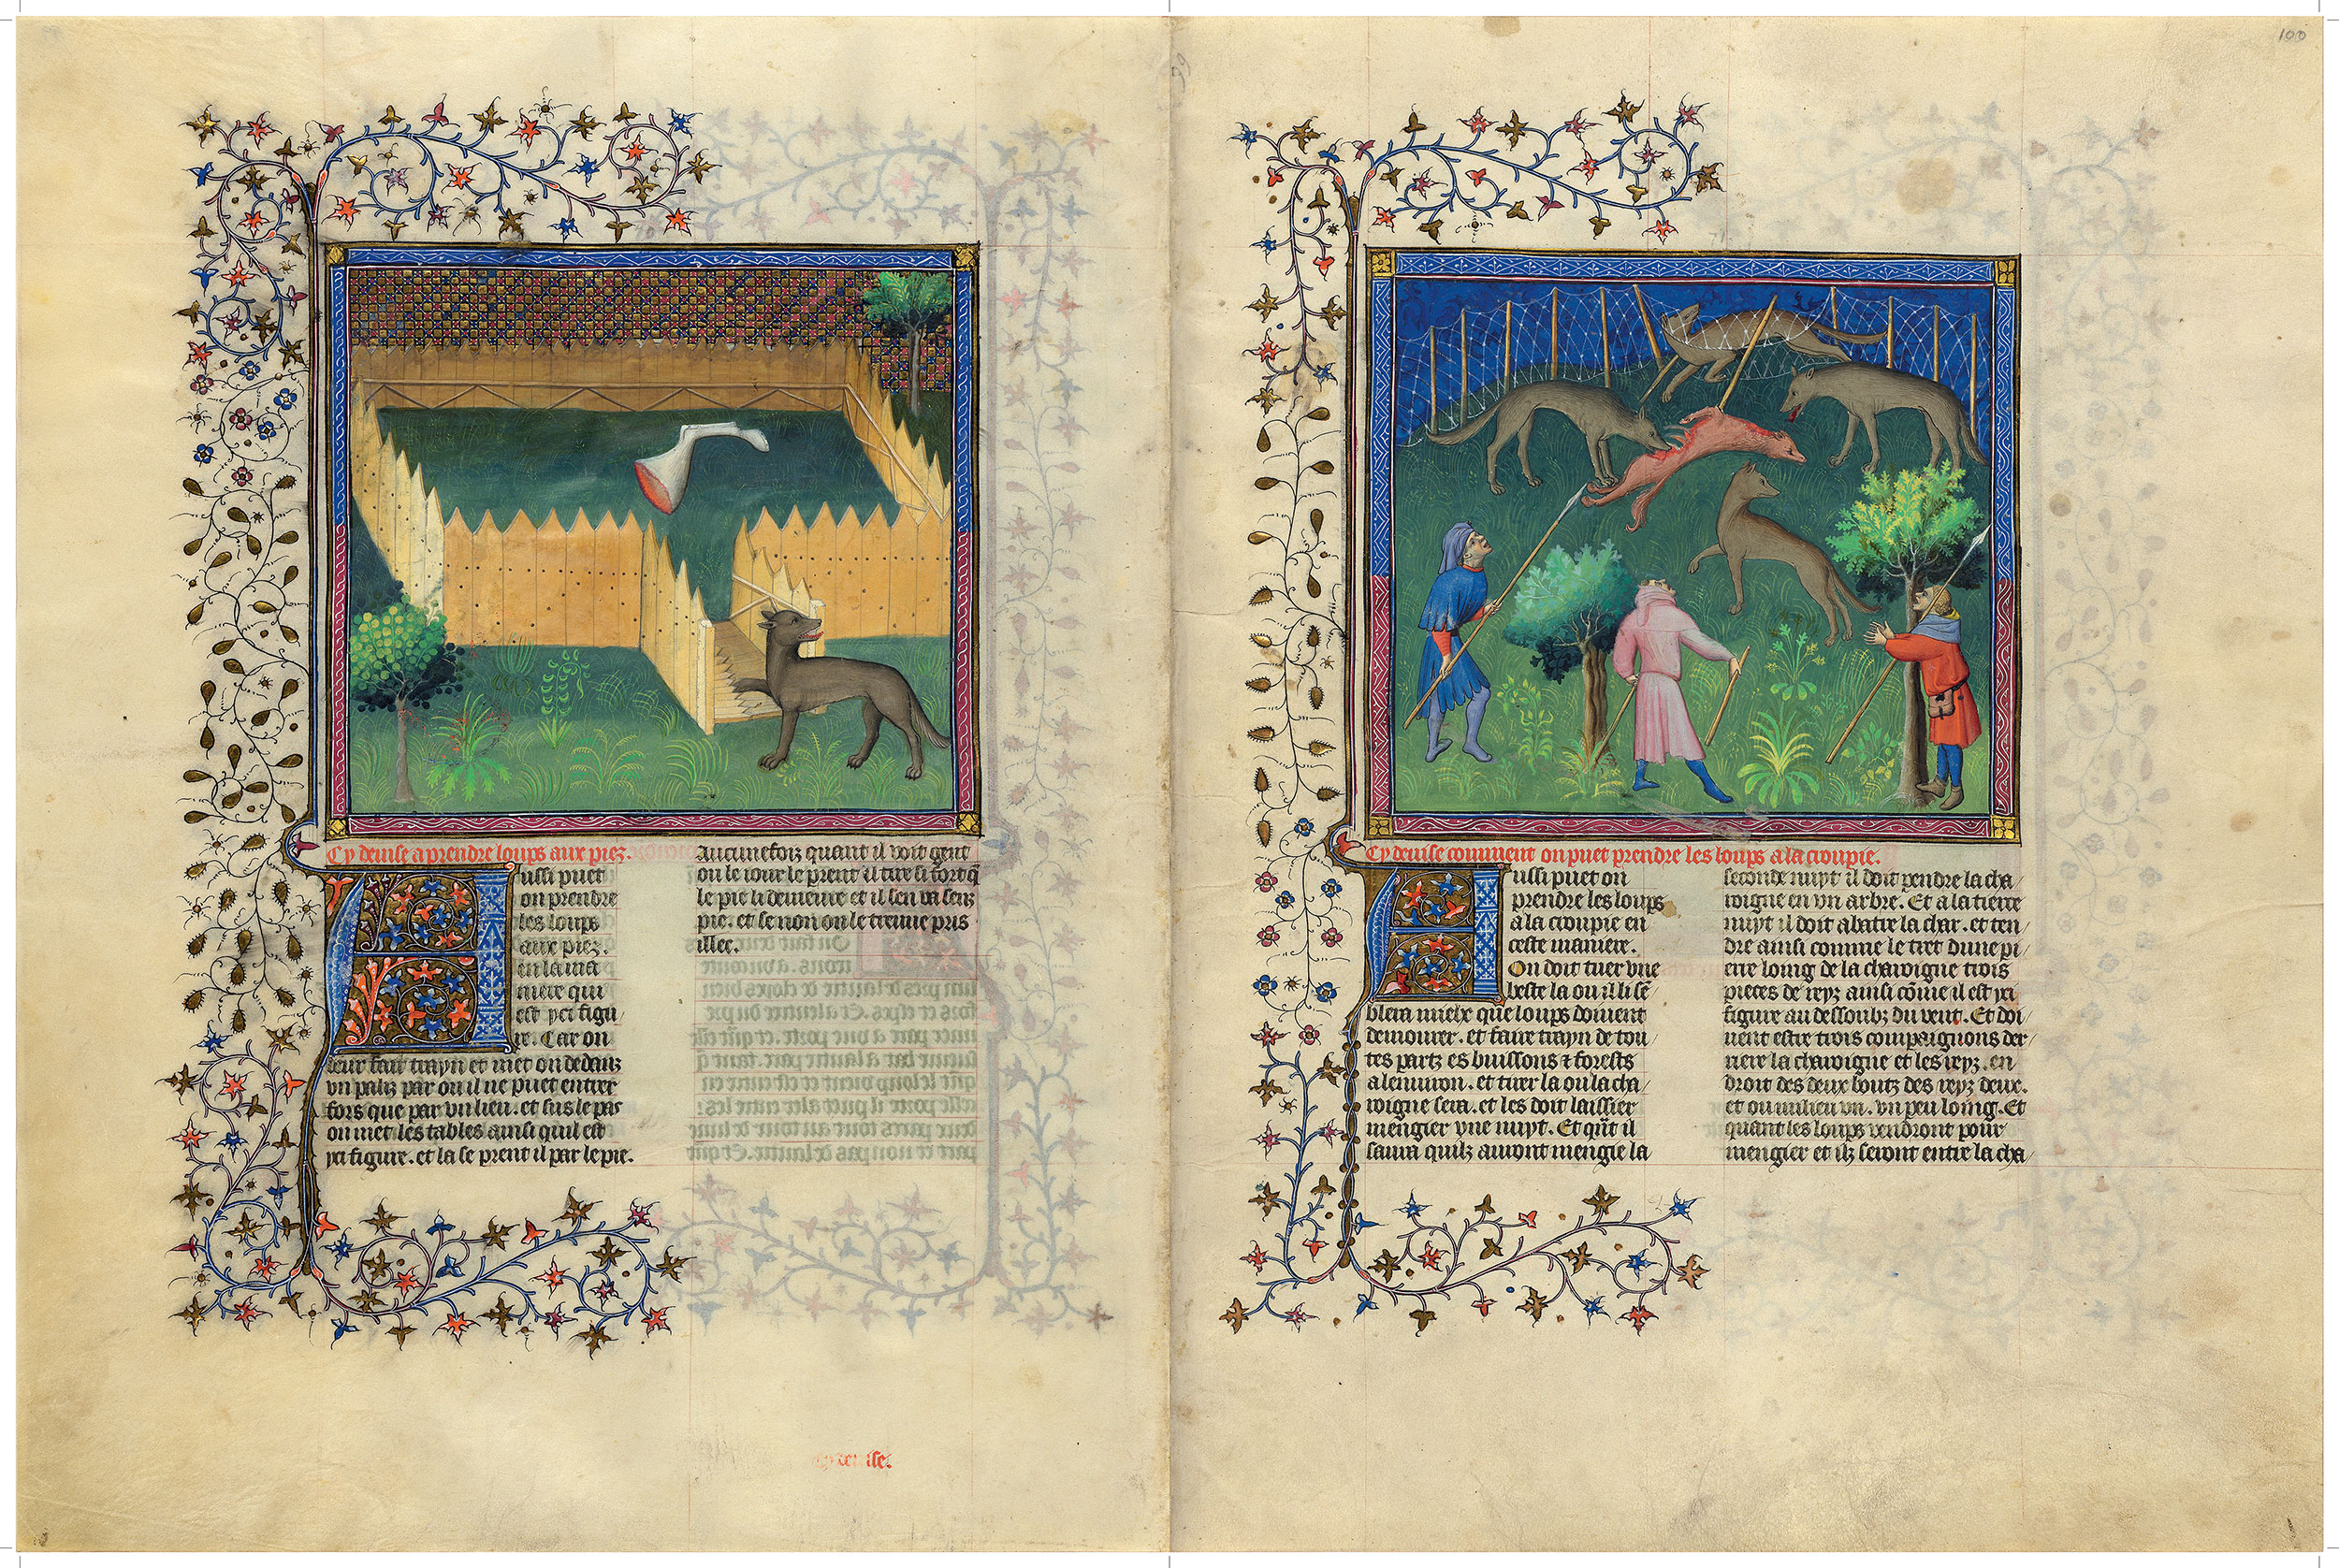 Cy deuise a prendre loups aux piez.
Aussi puet
on prendre
les loups
aux piez.
en la ma
niere qui
est yci figu
re. Car on
leur fait trayn et met on dedanz
vn paliz par ou il ne puet entrer
fors que par vn lieu. et sus le pas
on met les tables ainsi quil est
yci figure. et la se prent il par le pie.
Aucunefoiz quant il voit gent
ou le iour le prent il tire si fort q̄
le pie li demeure et il sen va senz
pie. et se non on le treuue pris
illec.
cy deuise.
100
99
Cy deuise comment on puet prendre les loups a la croupie.
Aussi puet on
prendre les loups
a la croupie en
ceste maniere.
On doit tuer vne
beste la ou il li sē
blera mielx que loups doiuent
demourer. et faire trayn de tou
tes partz es buissons ⁊ forests
a lenuiron. et tirer la ou la cha
roigne sera. et les doit laissier
mengier vne nuyt. Et qūt il
saura quilz auront mengie la
seconde nuyt il doit pendre la cha
roigne en vn arbre. Et a la tierce
nuyt il doit abatre la char. et ten
dre ainsi comme le tret dune pi
erre loing de la charoigne trois
pieces de reyz ainsi cōme il est yci
figure au dessoubz du vent. Et doi
uent estre trois compaignons der
riere la charoigne et les reyz. en
droit des deux boutz des reyz deux.
et ou milieu vn. vn peu loing. Et
quant les loups vendront pour
mengier et ilz seront entre la cha